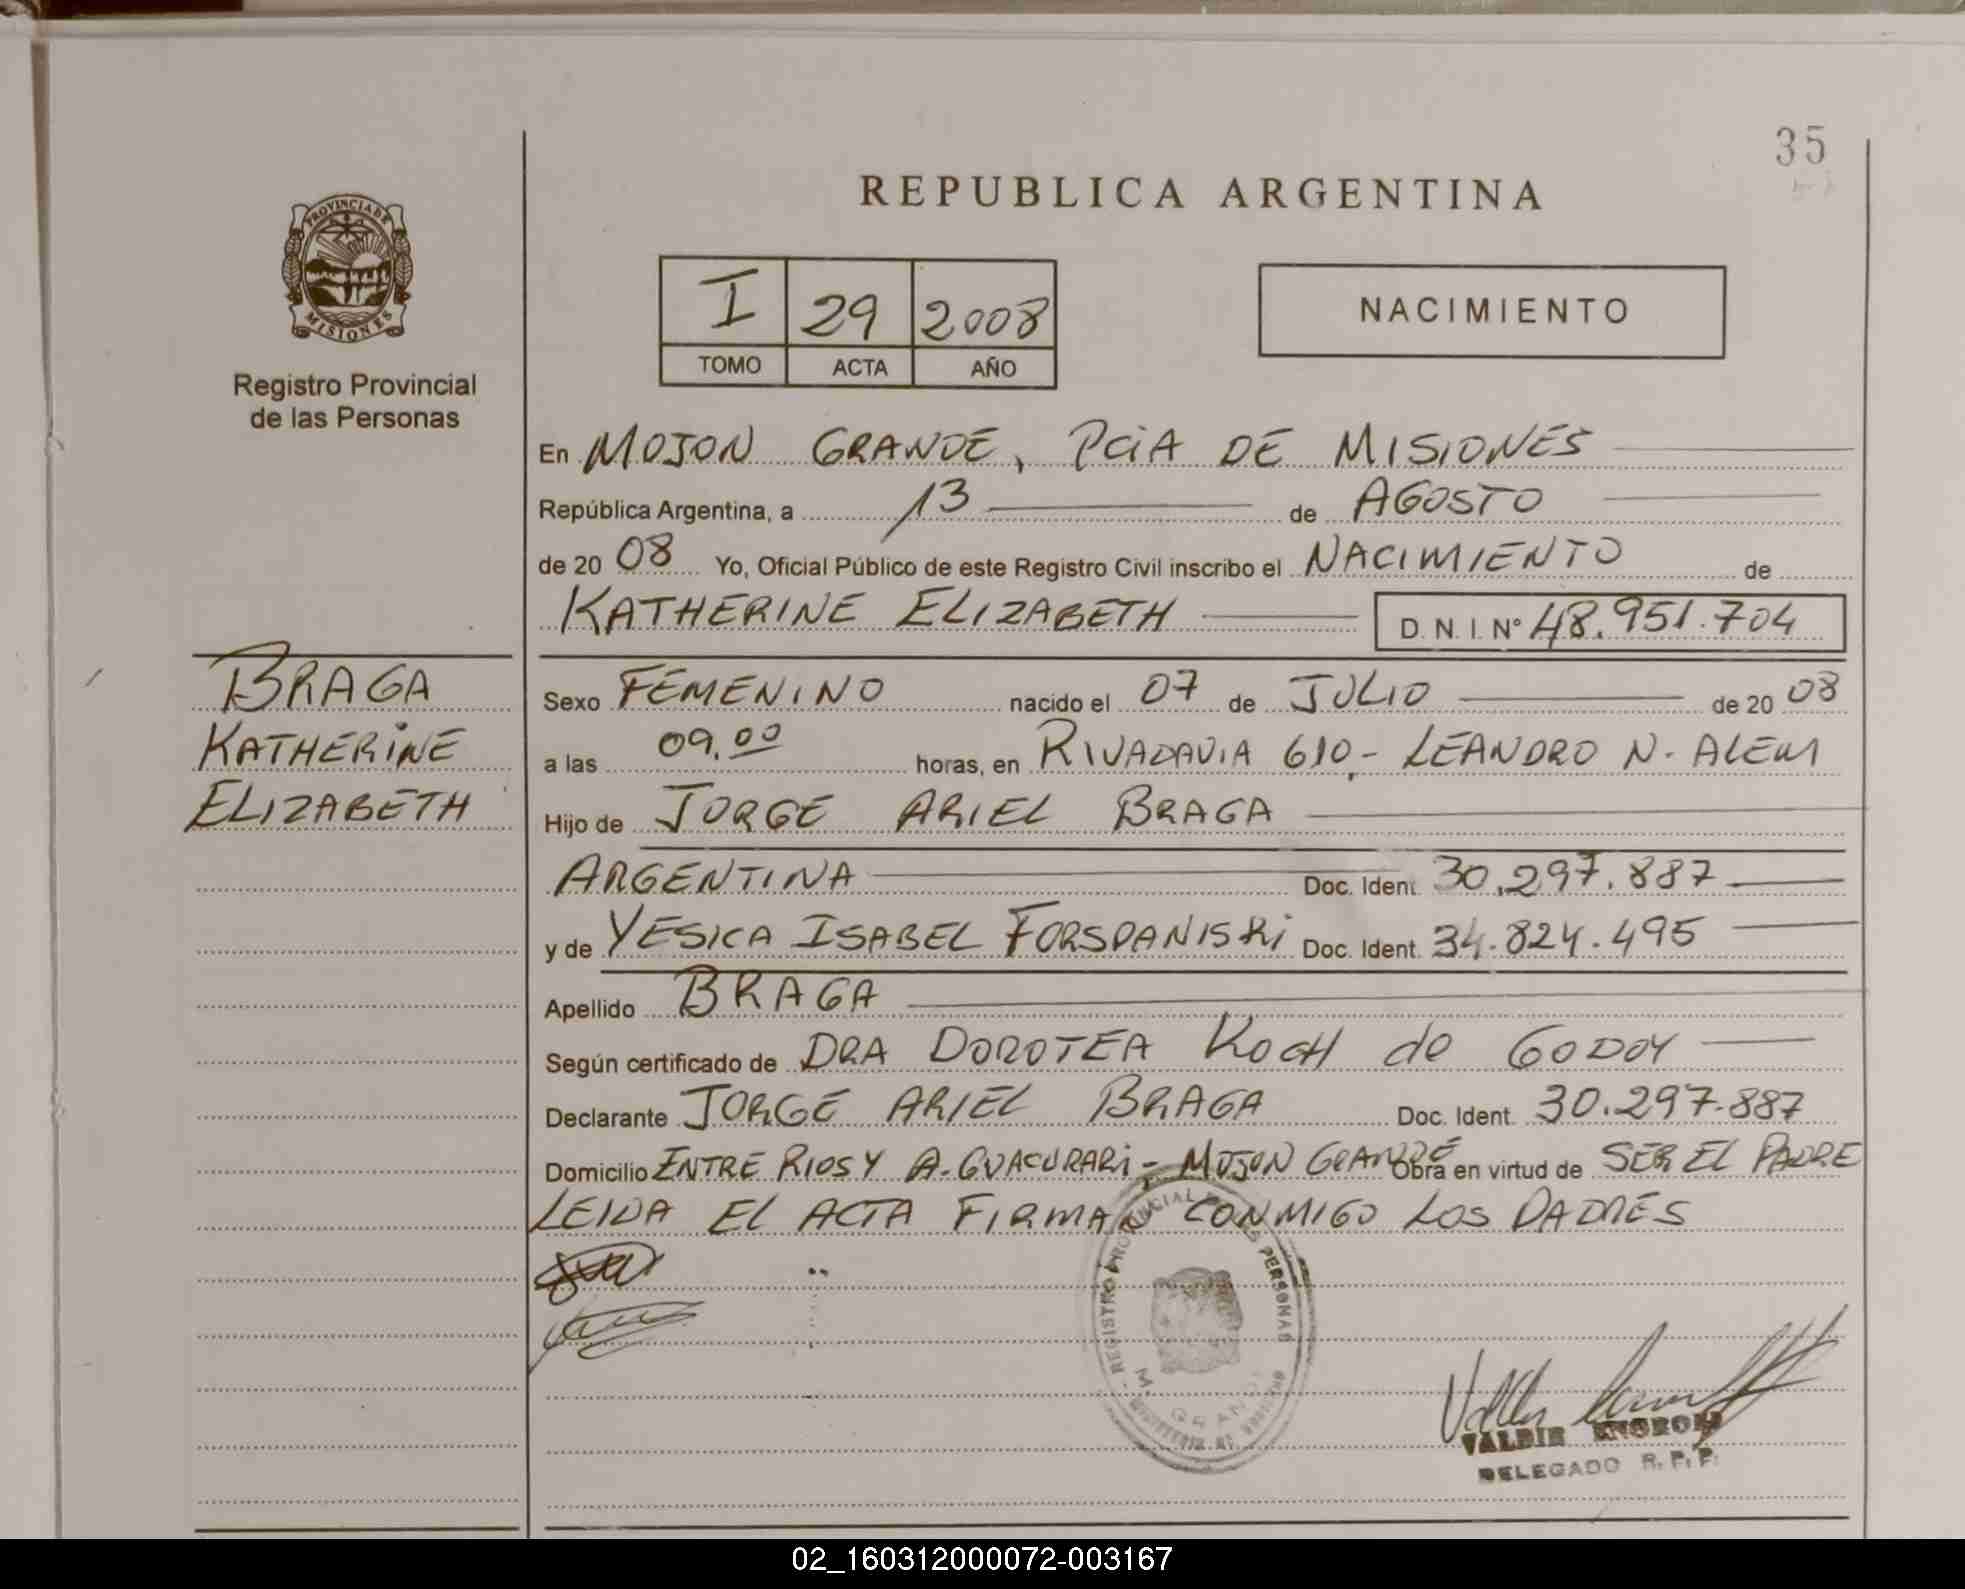 35
REPUBLICA ARGENTINA
PROVINCIA DE
MISIONES
Registro Provincial
de las Personas
I 29 2008
TOMO ACTA AÑO
NACIMIENTO
En MOJON GRANDE, PCIA DE MISIONES
República Argentina, a 13 de AGOSTO
de 20 08 Yo, Oficial Público de este Registro Civil inscribo el NACIMIENTO de
KATHERINE ELIZABETH D. N. I. N° 48.951.704
BRAGA
KATHERINE
ELIZABETH
Sexo FEMENINO nacido el 07 de JULIO de 20 08
a las 09.00 horas, en RIVADAVIA 610 - LEANDRO N. ALEM
Hijo de JORGE ARIEL BRAGA
ARGENTINA Doc. Ident. 30.297.887
y de YESICA ISABEL FORSPANISKI Doc. Ident. 34.824.495
Apellido BRAGA
Según certificado de DRA DOROTEA KOCH de GODOY
Declarante JORGE ARIEL BRAGA Doc. Ident. 30.297.887
Domicilio ENTRE RIOS Y A. GUACURARI - MOJON GRANDE Obra en virtud de SER EL PADRE
LEIDA EL ACTA FIRMAN CONMIGO LOS PADRES
REGISTRO PROVINCIAL DE LAS PERSONAS
M. GRANDE
VALDIR
DELEGADO R. P. P.
02_160312000072-003167